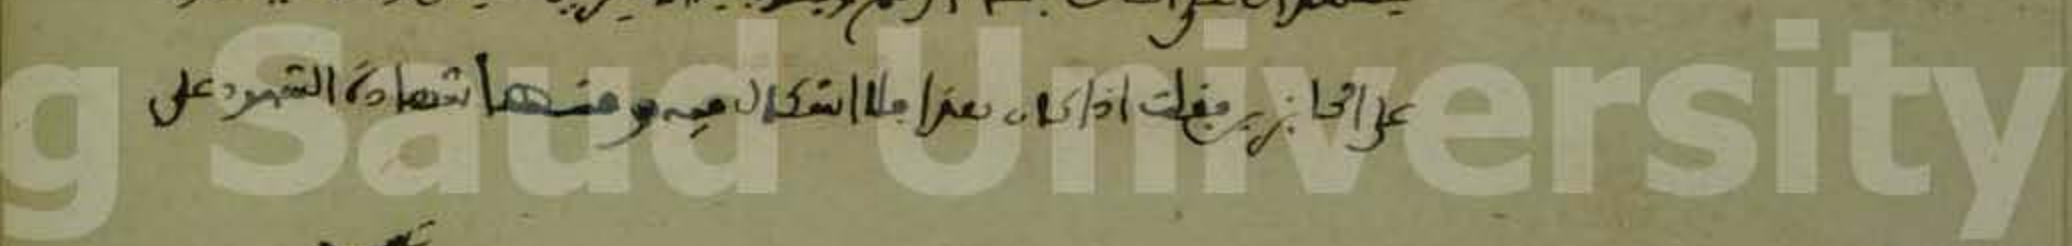 على الحائزين فقلت اذا كان هذا فلا اشكال فيه ومنها شهادة الشهود على
g Saud University